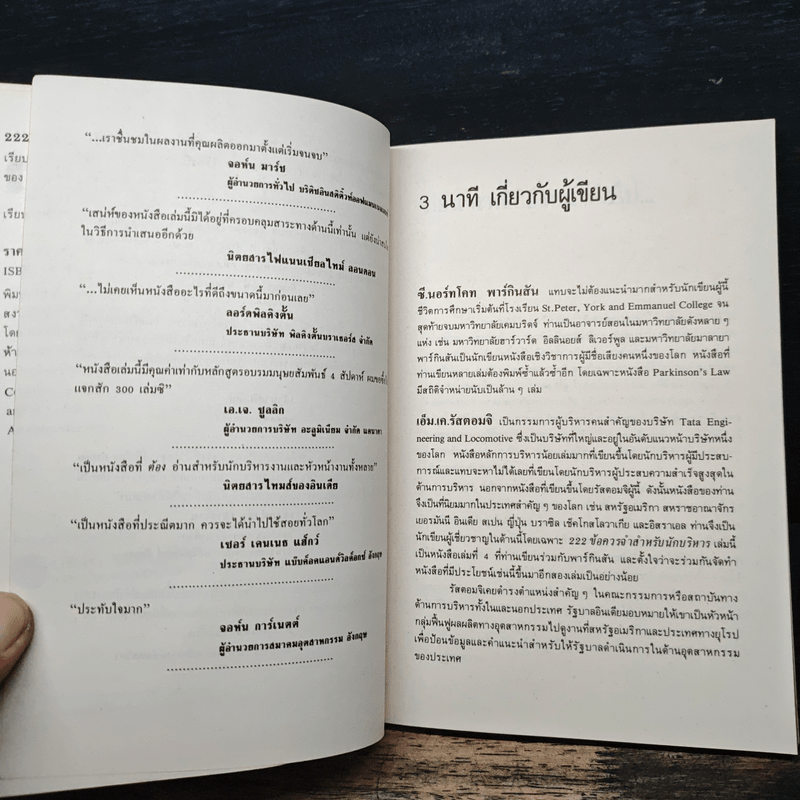 222
เรียบ
ของ
เรียบ
ราค
ISB
พิม
สงว
โดย
ห้า
นอ
Co
an
A
"...เราชื่นชมในผลงานที่คุณผลิตออกมาตั้งแต่เริ่มจนจบ"
จอห์น มาร์ช
ผู้อำนวยการทั่วไป บริติชอินสติติ้วท์ออฟแมนเนจเมนท์
"เสน่ห์ของหนังสือเล่มนี้มิได้อยู่ที่ครอบคลุมสาระทางด้านนี้เท่านั้น แต่ยังน่าสนใจ
ในวิธีการนำเสนออีกด้วย
นิตยสารไฟแนนเชียลไทม์ ลอนดอน
"...ไม่เคยเห็นหนังสืออะไรที่ดีถึงขนาดนี้มาก่อนเลย"
ลอร์ดพิลคิงตั้น
ประธานบริษัท พิลคิงตั้นบราเธอร์ส จำกัด
"หนังสือเล่มนี้มีคุณค่าเท่ากับหลักสูตรอบรมมนุษยสัมพันธ์ 4 สัปดาห์
แจกสัก 300 เล่มซิ"
เอ.เจ. ชูลลิก
ผู้อำนวยการบริษัท อะลูมิเนียม จำกัด แคนาดา
"เป็นหนังสือที่ ต้อง อ่านสำหรับนักบริหารงานและหัวหน้างานทั้งหลาย"
นิตยสารไทมส์ของอินเดีย
"เป็นหนังสือที่ประณีตมาก ควรจะได้นำไปใช้สอยทั่วโลก"
เซอร์ เคนเนธ แฮ็กว์
ประธานบริษัท แบ๊บค็อคแอนด์วิลค็อกซ์ อังกฤษ
"ประทับใจมาก"
จอห์น การ์เนตต์
ผู้อำนวยการสมาคมอุตสาหกรรม อังกฤษ
3 นาที เกี่ยวกับผู้เขียน
ซี.นอร์ทโคท พาร์กินสัน แทบจะไม่ต้องแนะนำมากสำหรับนักเขียนผู้นี้
ชีวิตการศึกษาเริ่มต้นที่โรงเรียน St.Peter, York and Emmanuel College จน
สุดท้ายจบมหาวิทยาลัยเคมบริดจ์ ท่านเป็นอาจารย์สอนในมหาวิทยาลัยดังหลาย ๆ
แห่ง เช่น มหาวิทยาลัยฮาร์วาร์ด อิลลินอยส์ ลิเวอร์พูล และมหาวิทยาลัยมาลายา
พาร์กินสันเป็นนักเขียนหนังสือเชิงวิชาการผู้มีชื่อเสียงคนหนึ่งของโลก หนังสือที่
ท่านเขียนหลายเล่มต้องพิมพ์ซ้ำแล้วซ้ำอีก โดยเฉพาะหนังสือ Parkinson's Law
มีสถิติจำหน่ายนับเป็นล้าน ๆ เล่ม
เอ็ม.เค.รัสตอมจิ เป็นกรรมการผู้บริหารคนสำคัญของบริษัท Tata Engi-
neering and Locomotive ซึ่งเป็นบริษัทที่ใหญ่และอยู่ในอันดับแนวหน้าบริษัทหนึ่ง
ของโลก หนังสือหลักการบริหารน้อยเล่มมากที่เขียนขึ้นโดยนักบริหารผู้มีประสบ-
การณ์และแทบจะหาไม่ได้เลยที่เขียนโดยนักบริหารผู้ประสบความสำเร็จสูงสุดใน
ด้านการบริหาร นอกจากหนังสือที่เขียนขึ้นโดยรัสตอมจิผู้นี้ ดังนั้นหนังสือของท่าน
จึงเป็นที่นิยมมากในประเทศสำคัญ ๆ ของโลก เช่น สหรัฐอเมริกา สหราชอาณาจักร
เยอรมันนี อินเดีย สเปน ญี่ปุ่น บราซิล เช็คโกสโลวาเกีย และอิสราเอล ท่านจึงเป็น
นักเขียนผู้เชี่ยวชาญในด้านนี้โดยเฉพาะ 222 ข้อควรจำสำหรับนักบริหาร เล่มนี้
เป็นหนังสือเล่มที่ 4 ที่ท่านเขียนร่วมกับพาร์กินสัน และตั้งใจว่าจะร่วมกันจัดทำ
หนังสือที่มีประโยชน์เช่นนี้ขึ้นมาอีกสองเล่มเป็นอย่างน้อย
รัสตอมจิเคยดำรงตำแหน่งสำคัญ ๆ ในคณะกรรมการหรือสถาบันทาง
ด้านการบริหารทั้งในและนอกประเทศ รัฐบาลอินเดียมอบหมายให้เขาเป็นหัวหน้า
กลุ่มฟื้นฟูผลผลิตทางอุตสาหกรรมไปดูงานที่สหรัฐอเมริกาและประเทศทางยุโรป
เพื่อป้อนข้อมูลและคำแนะนำสำหรับให้รัฐบาลดำเนินการในด้านอุตสาหกรรม
ของประเทศ